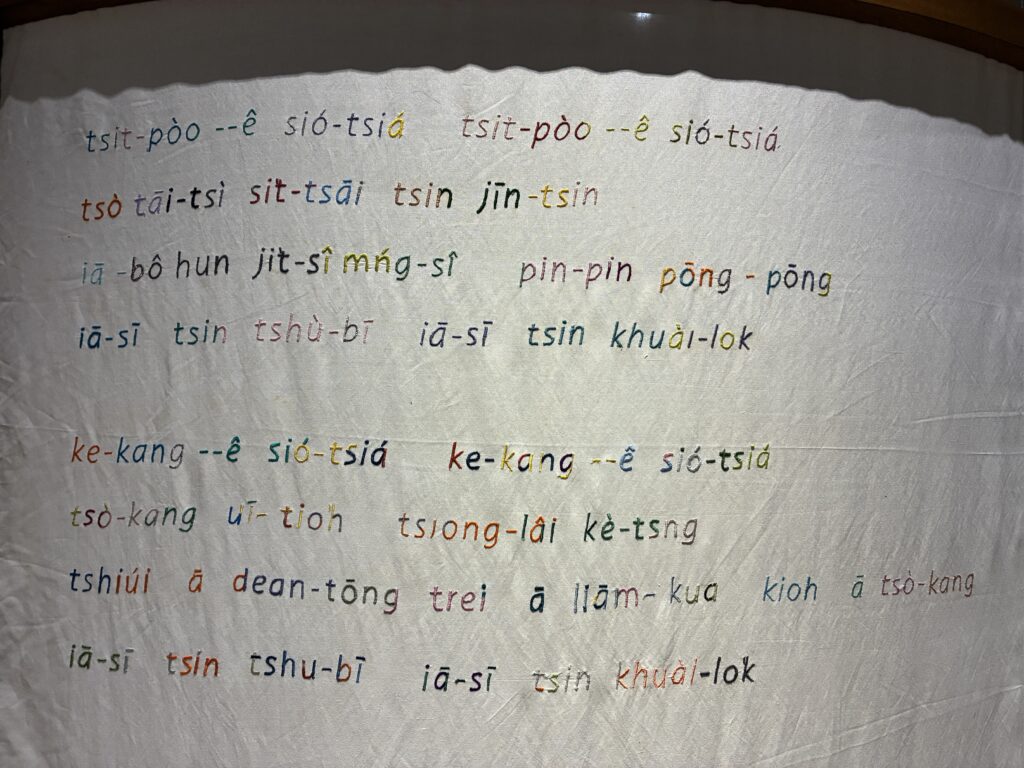 tsit-pòo --ê sió-tsiá tsit-pòo --ê sió-tsiá
tsò tāi-tsì sit-tsāi tsin jīn-tsin
iā-bô hun ji̍t-sî mńg-sî pin-pin pōng-pōng
iā-sī tsin tshù-bī iā-sī tsin khuài-lok
ke-kang --ê sió-tsiá ke-kang --ê sió-tsiá
tsò-kang uī-tioh tsiong-lâi kè-tsng
tshiúi ā dean-tōng trei ā llām-kua kioh ā tsò-kang
iā-sī tsin tshu-bī iā-sī tsin khuài-lok